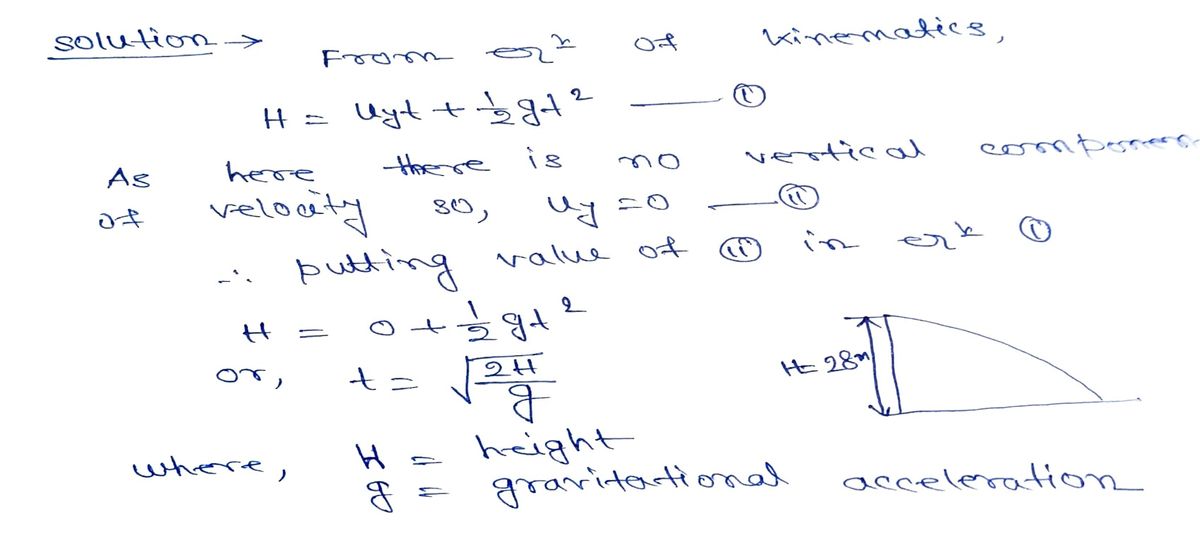 solution →
From eqⁿ of kinematics,
H = uyt + 1/2 gt² —— (i)
As here there is no vertical
of velocity so, uy = 0 —— (ii)
∴ putting value of (ii) in eqⁿ (i)
H = 0 + 1/2 gt²
or, t = √(2H/g)
H = 28m
where, H = height
g = gravitational acceleration